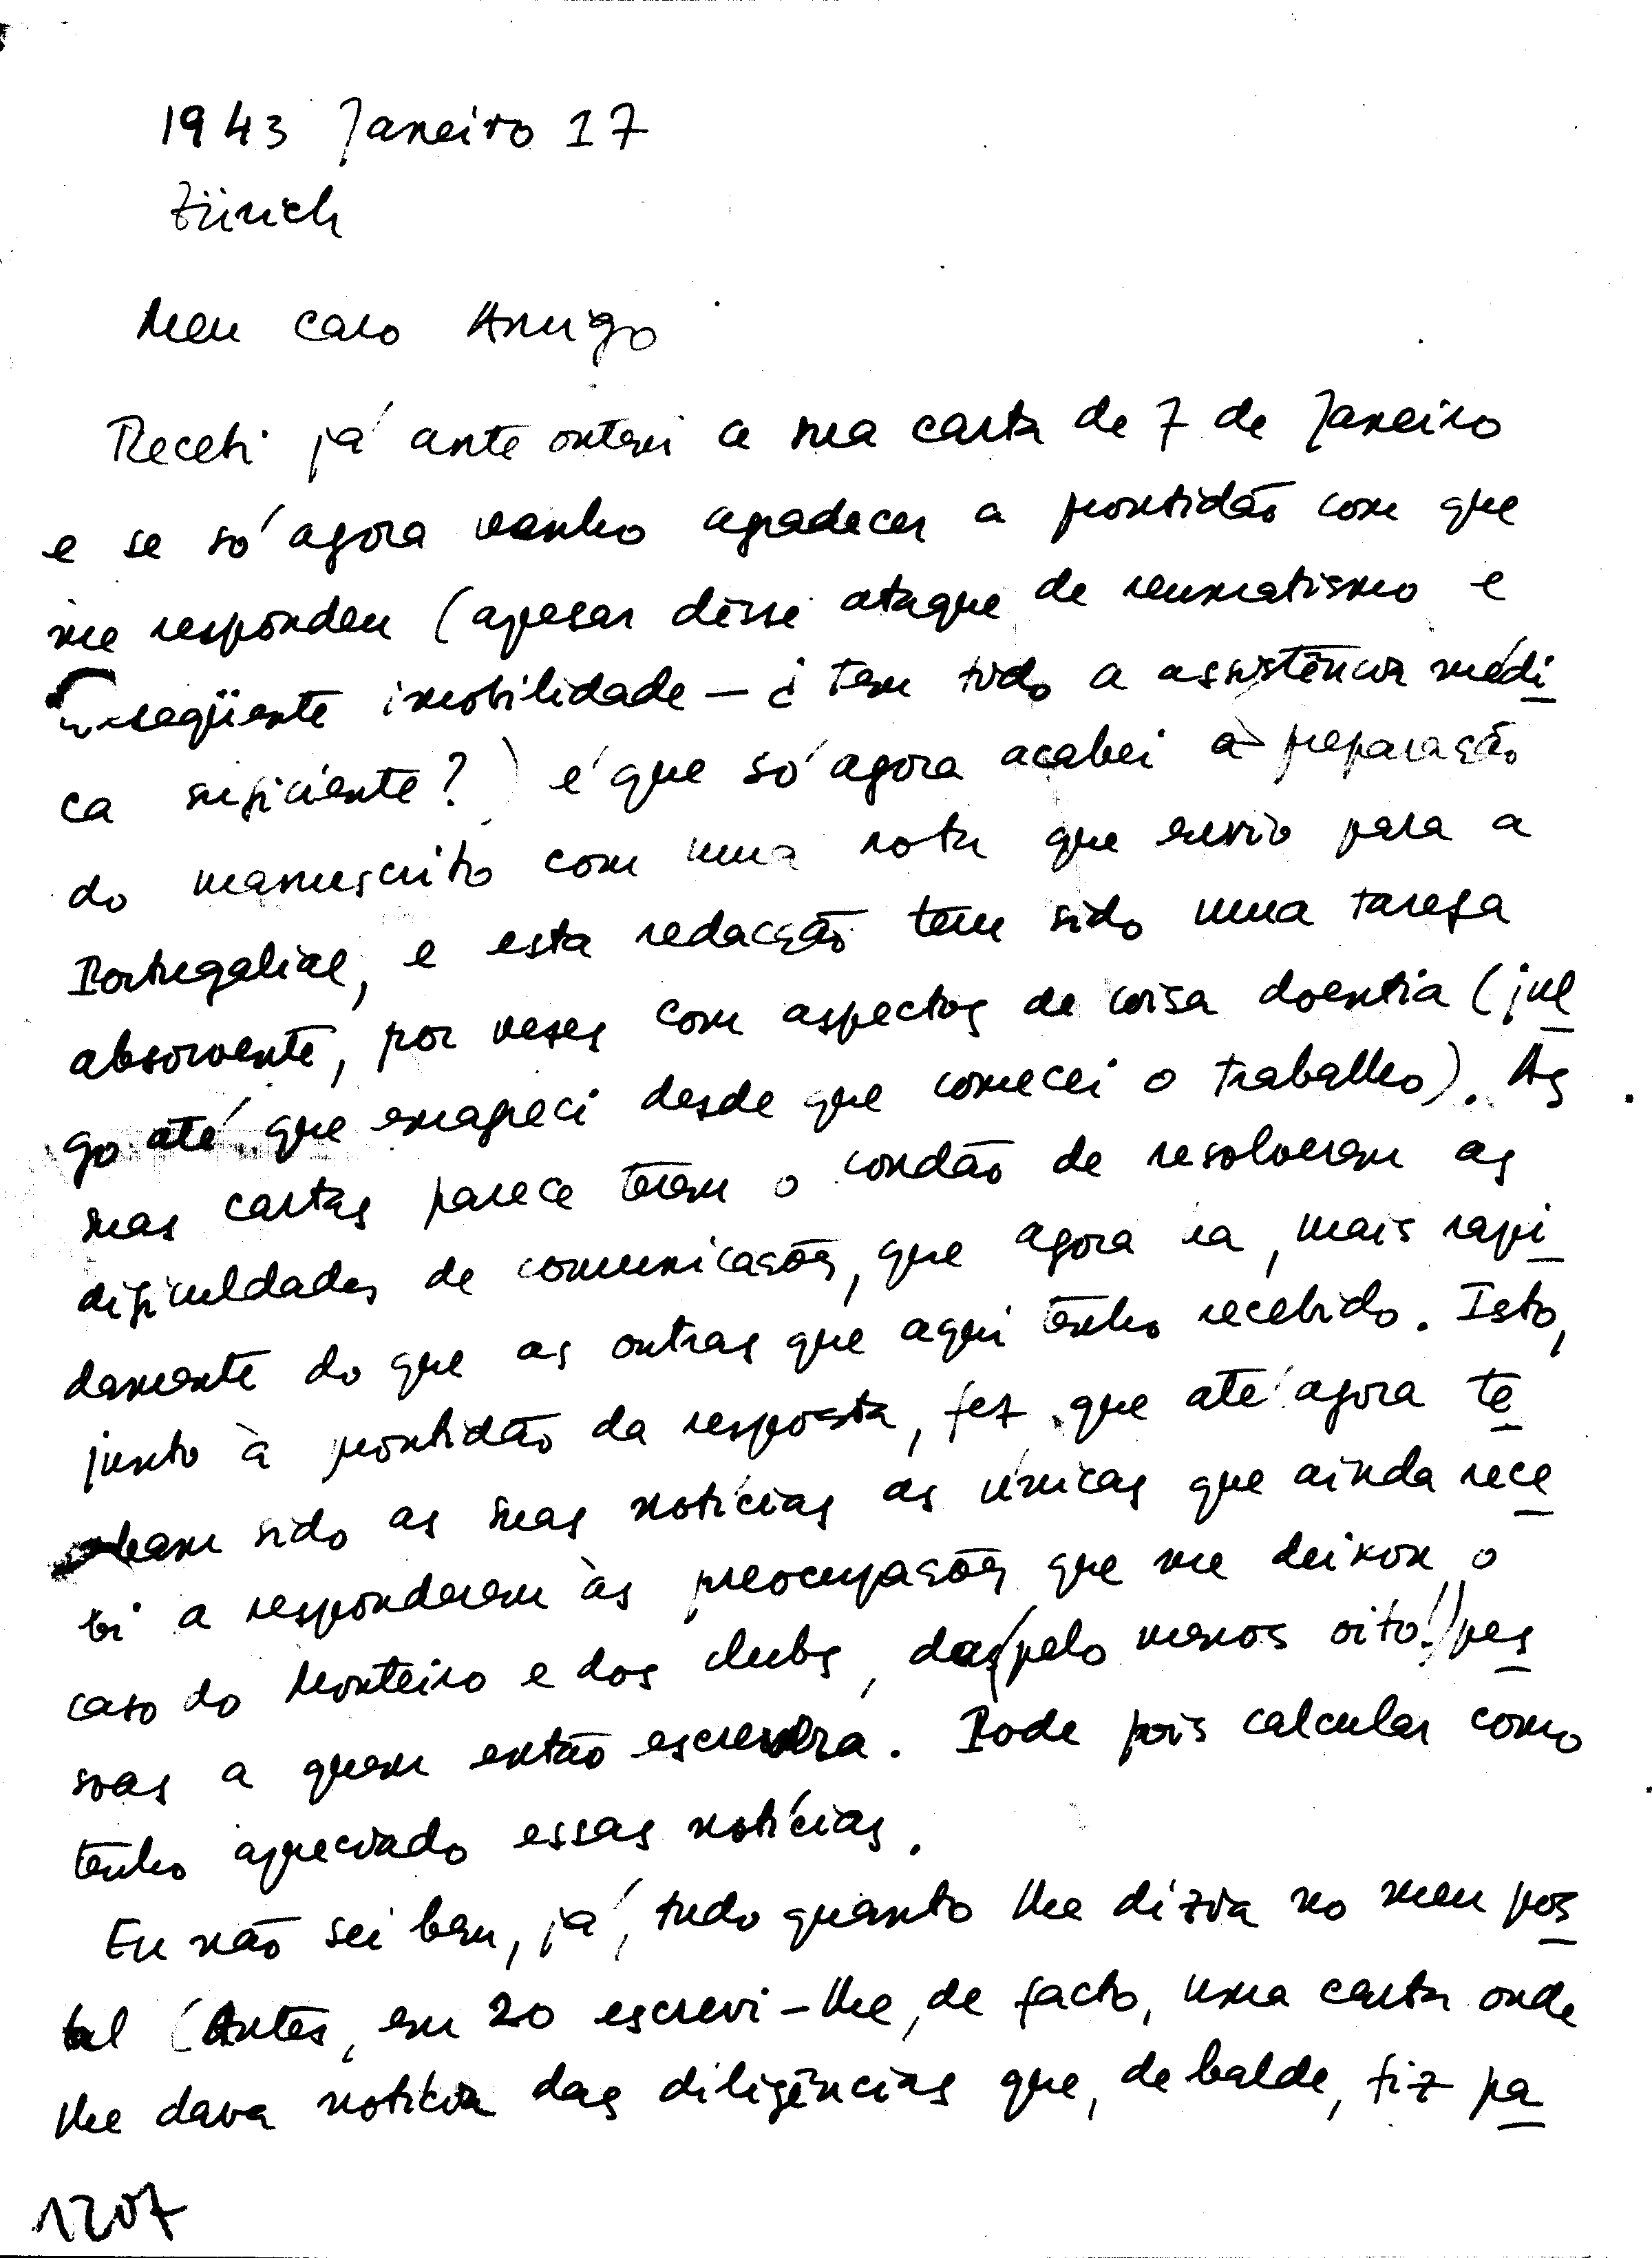 1943 Janeiro 17
Zürich
Meu caro Amigo
Recebi já ante ontem a sua carta de 7 de Janeiro
e se só agora venho agradecer a prontidão com que
me respondeu (apesar dêsse ataque de reumatismo e
conseqüente imobilidade — ¿ tem tido a assistência médi
ca suficiente? ) é que só agora acabei a preparação
do manuscrito com uma nota que envio para a
Portugaliae, e esta redacção tem sido uma tarefa
absorvente, por vezes com aspectos de coisa doentia (jul
go até que emagreci desde que comecei o trabalho). As
suas cartas parece terem o condão de resolverem as
dificuldades de comunicações, que agora a, mais rapi
damente do que as outras que aqui tenho recebido. Isto,
junto à prontidão da resposta, fez que até agora te
nham sido as suas notícias as únicas que ainda rece
bi a responderem às preocupações que me deixou o
caso do Monteiro e dos clubs, das (pelo menos oito!) pes
soas a quem então escrevera. Pode pois calcular como
tenho apreciado essas notícias.
Eu não sei bem, já, tudo quanto lhe dizia no meu pos
tal (Antes, em 20 escrevi-lhe, de facto, uma carta onde
lhe dava notícia das diligências que, debalde, fiz pa
1207